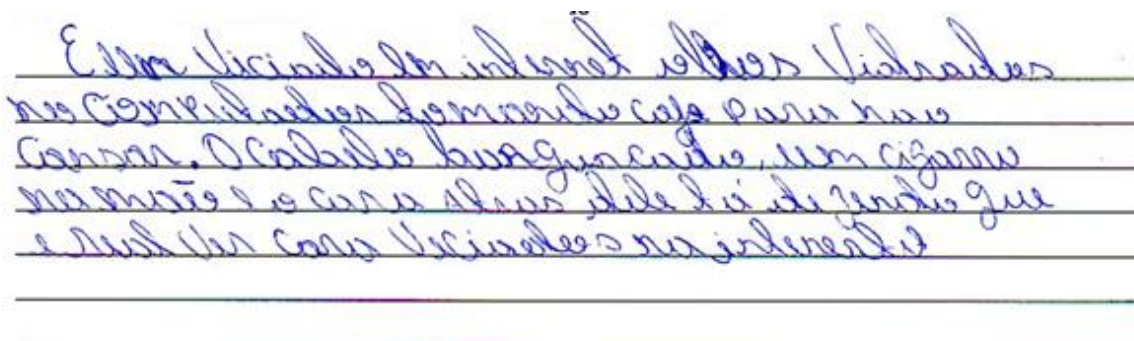 E um Viciado em internet olhos Vidrados
no computador tomando cafe para nao
cansar. O Cabelo bagunçado, um cigarro
na mão e o cara atras dele tá dizendo que
e real ver cara viciados na internet